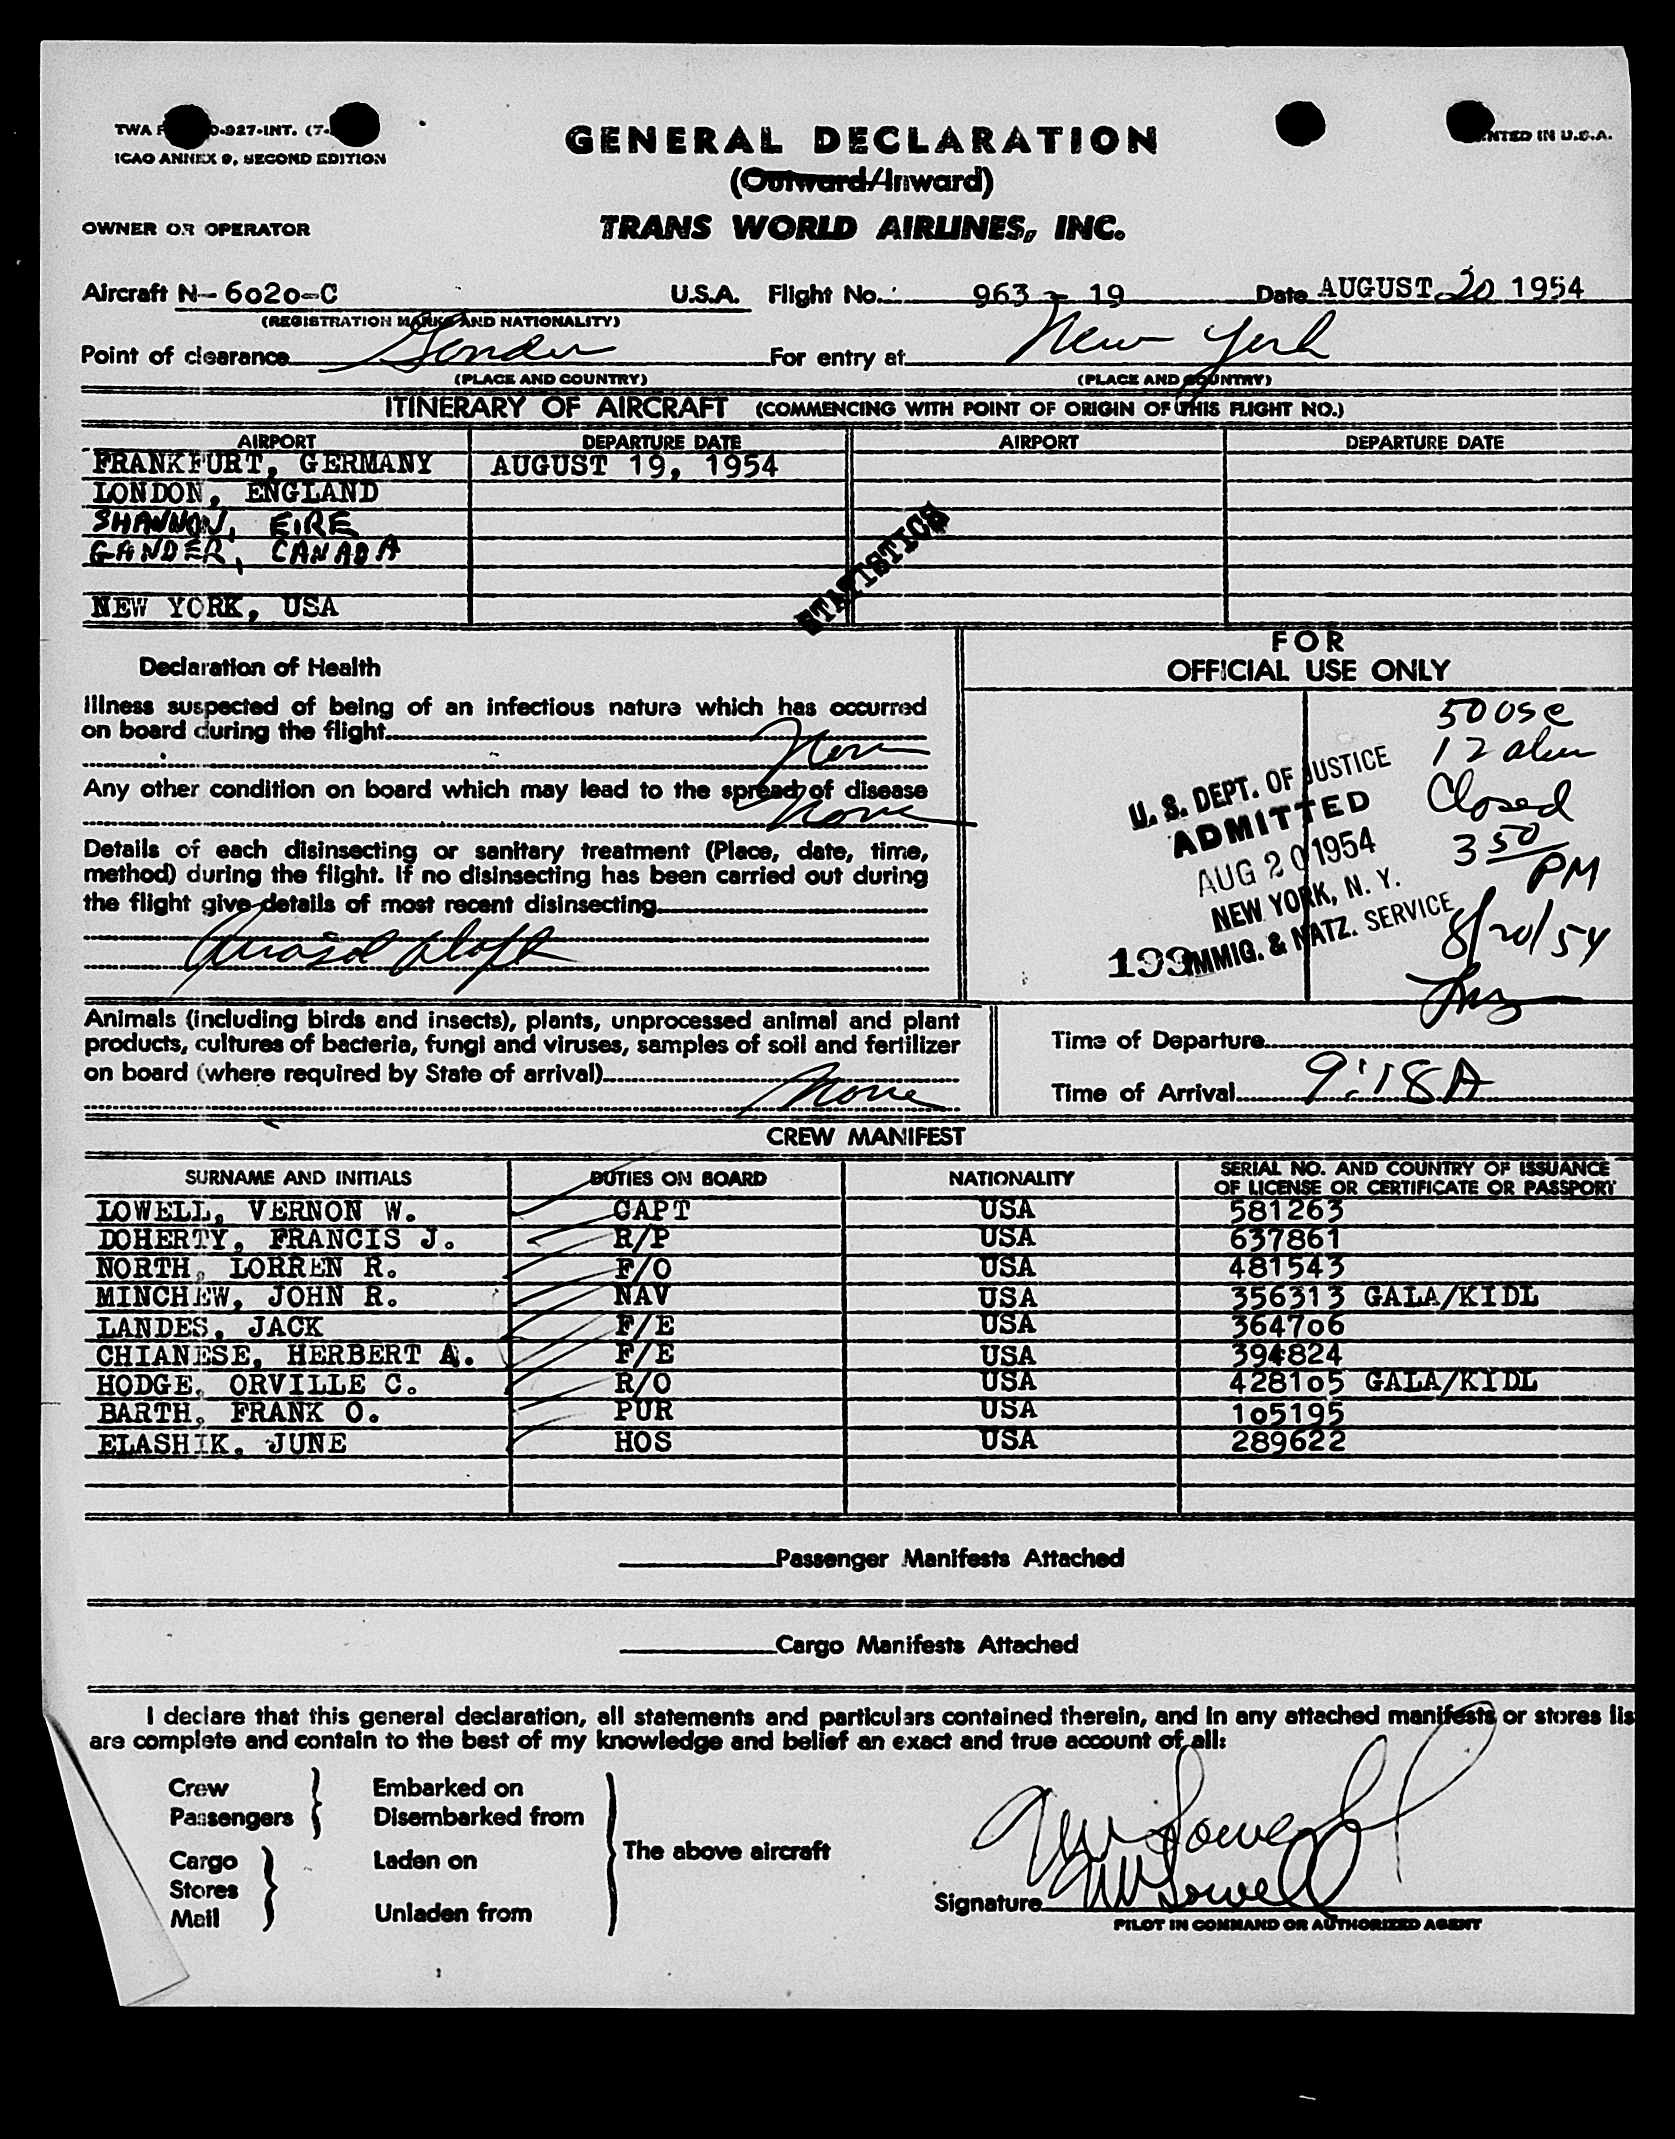 GENERAL DECLARATION
ICAO ANNEX 9, SECOND EDITION
(Outward/Inward)
OWNER OR OPERATOR TRANS WORLD AIRLINES, INC.
Aircraft N-6020-C U.S.A. Flight No. 963 - 19 Date AUGUST 20 1954
(REGISTRATION MARKS AND NATIONALITY)
Point of clearance Gander For entry at New York
(PLACE AND COUNTRY) (PLACE AND COUNTRY)
ITINERARY OF AIRCRAFT (COMMENCING WITH POINT OF ORIGIN OF THIS FLIGHT NO.)
AIRPORT DEPARTURE DATE AIRPORT DEPARTURE DATE
FRANKFURT, GERMANY AUGUST 19, 1954
LONDON, ENGLAND
SHANNON, EIRE
GANDER, CANADA
NEW YORK, USA
STATISTICS
Declaration of Health
Illness suspected of being of an infectious nature which has occurred
on board during the flight
None
Any other condition on board which may lead to the spread of disease
None
Details of each disinsecting or sanitary treatment (Place, date, time,
method) during the flight. If no disinsecting has been carried out during
the flight give details of most recent disinsecting
FOR
OFFICIAL USE ONLY
50 USC
12 alien
Closed
3 50 PM
8/20/54
U. S. DEPT. OF JUSTICE
ADMITTED
AUG 20 1954
NEW YORK, N. Y.
IMMIG. & NATZ. SERVICE
Animals (including birds and insects), plants, unprocessed animal and plant
products, cultures of bacteria, fungi and viruses, samples of soil and fertilizer
on board (where required by State of arrival)
None
Time of Departure
Time of Arrival 9:18A
CREW MANIFEST
SURNAME AND INITIALS DUTIES ON BOARD NATIONALITY SERIAL NO. AND COUNTRY OF ISSUANCE
OF LICENSE OR CERTIFICATE OR PASSPORT
LOWELL, VERNON W. CAPT USA 581263
DOHERTY, FRANCIS J. R/P USA 637861
NORTH, LORREN R. F/O USA 481543
MINCHEW, JOHN R. NAV USA 356313 GALA/KIDL
LANDES, JACK F/E USA 364706
CHIANESE, HERBERT A. F/E USA 394824
HODGE, ORVILLE C. R/O USA 428105 GALA/KIDL
BARTH, FRANK O. PUR USA 105195
ELASHIK, JUNE HOS USA 289622
Passenger Manifests Attached
Cargo Manifests Attached
I declare that this general declaration, all statements and particulars contained therein, and in any attached manifests or stores lis
are complete and contain to the best of my knowledge and belief an exact and true account of all:
Crew
Passengers
Embarked on
Disembarked from
Cargo
Stores
Mail
Laden on
Unladen from
The above aircraft
VW Lowell
Signature VW Lowell
PILOT IN COMMAND OR AUTHORIZED AGENT